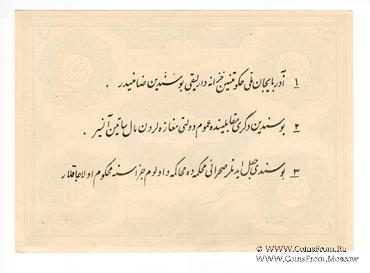 ۱ آذربایجان ملی حکومتینین خزانه دارلیقی بو سندین ضامنیدر .
۲ بو سندین دگری مقابلینده عموم دولتی مغازه لردن مال ساتین آلنیر .
۳ بو سندی جعل ایدنلر صحرائی محکمه ده محاکمه و اولوم جزاسنه محکوم اولاجاقلار
© www.CoinsFrom.Ru
© www.CoinsFrom.Moscow